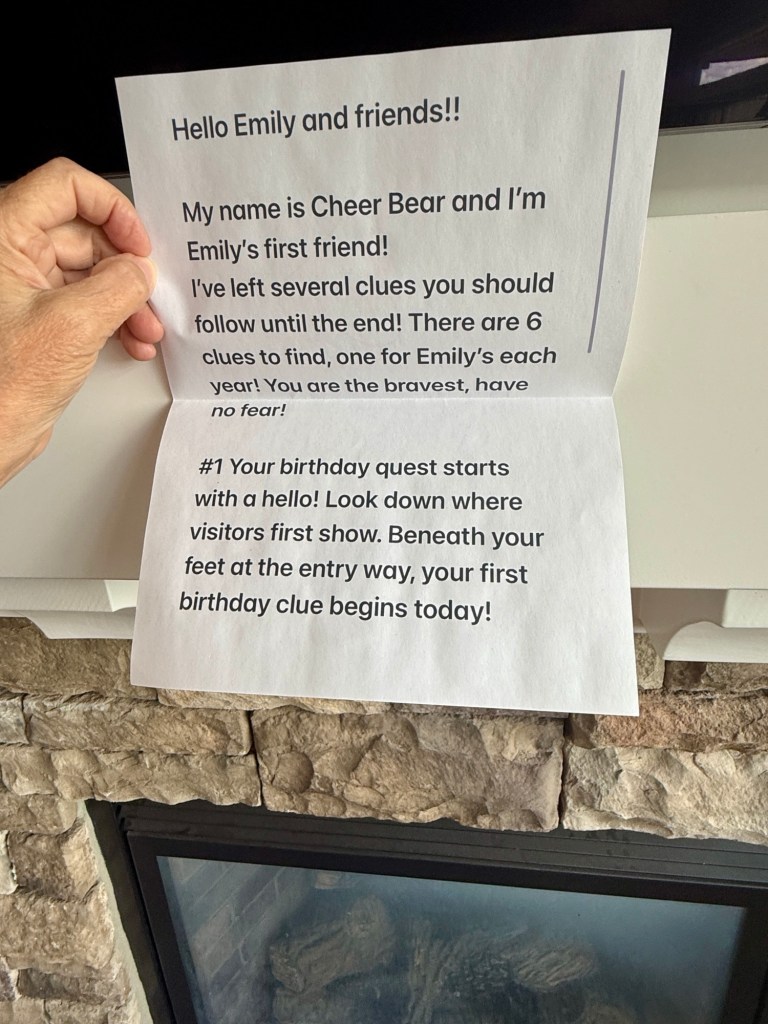 Hello Emily and friends!!
My name is Cheer Bear and I'm
Emily's first friend!
I've left several clues you should
follow until the end! There are 6
clues to find, one for Emily's each
year! You are the bravest, have
no fear!
#1 Your birthday quest starts
with a hello! Look down where
visitors first show. Beneath your
feet at the entry way, your first
birthday clue begins today!